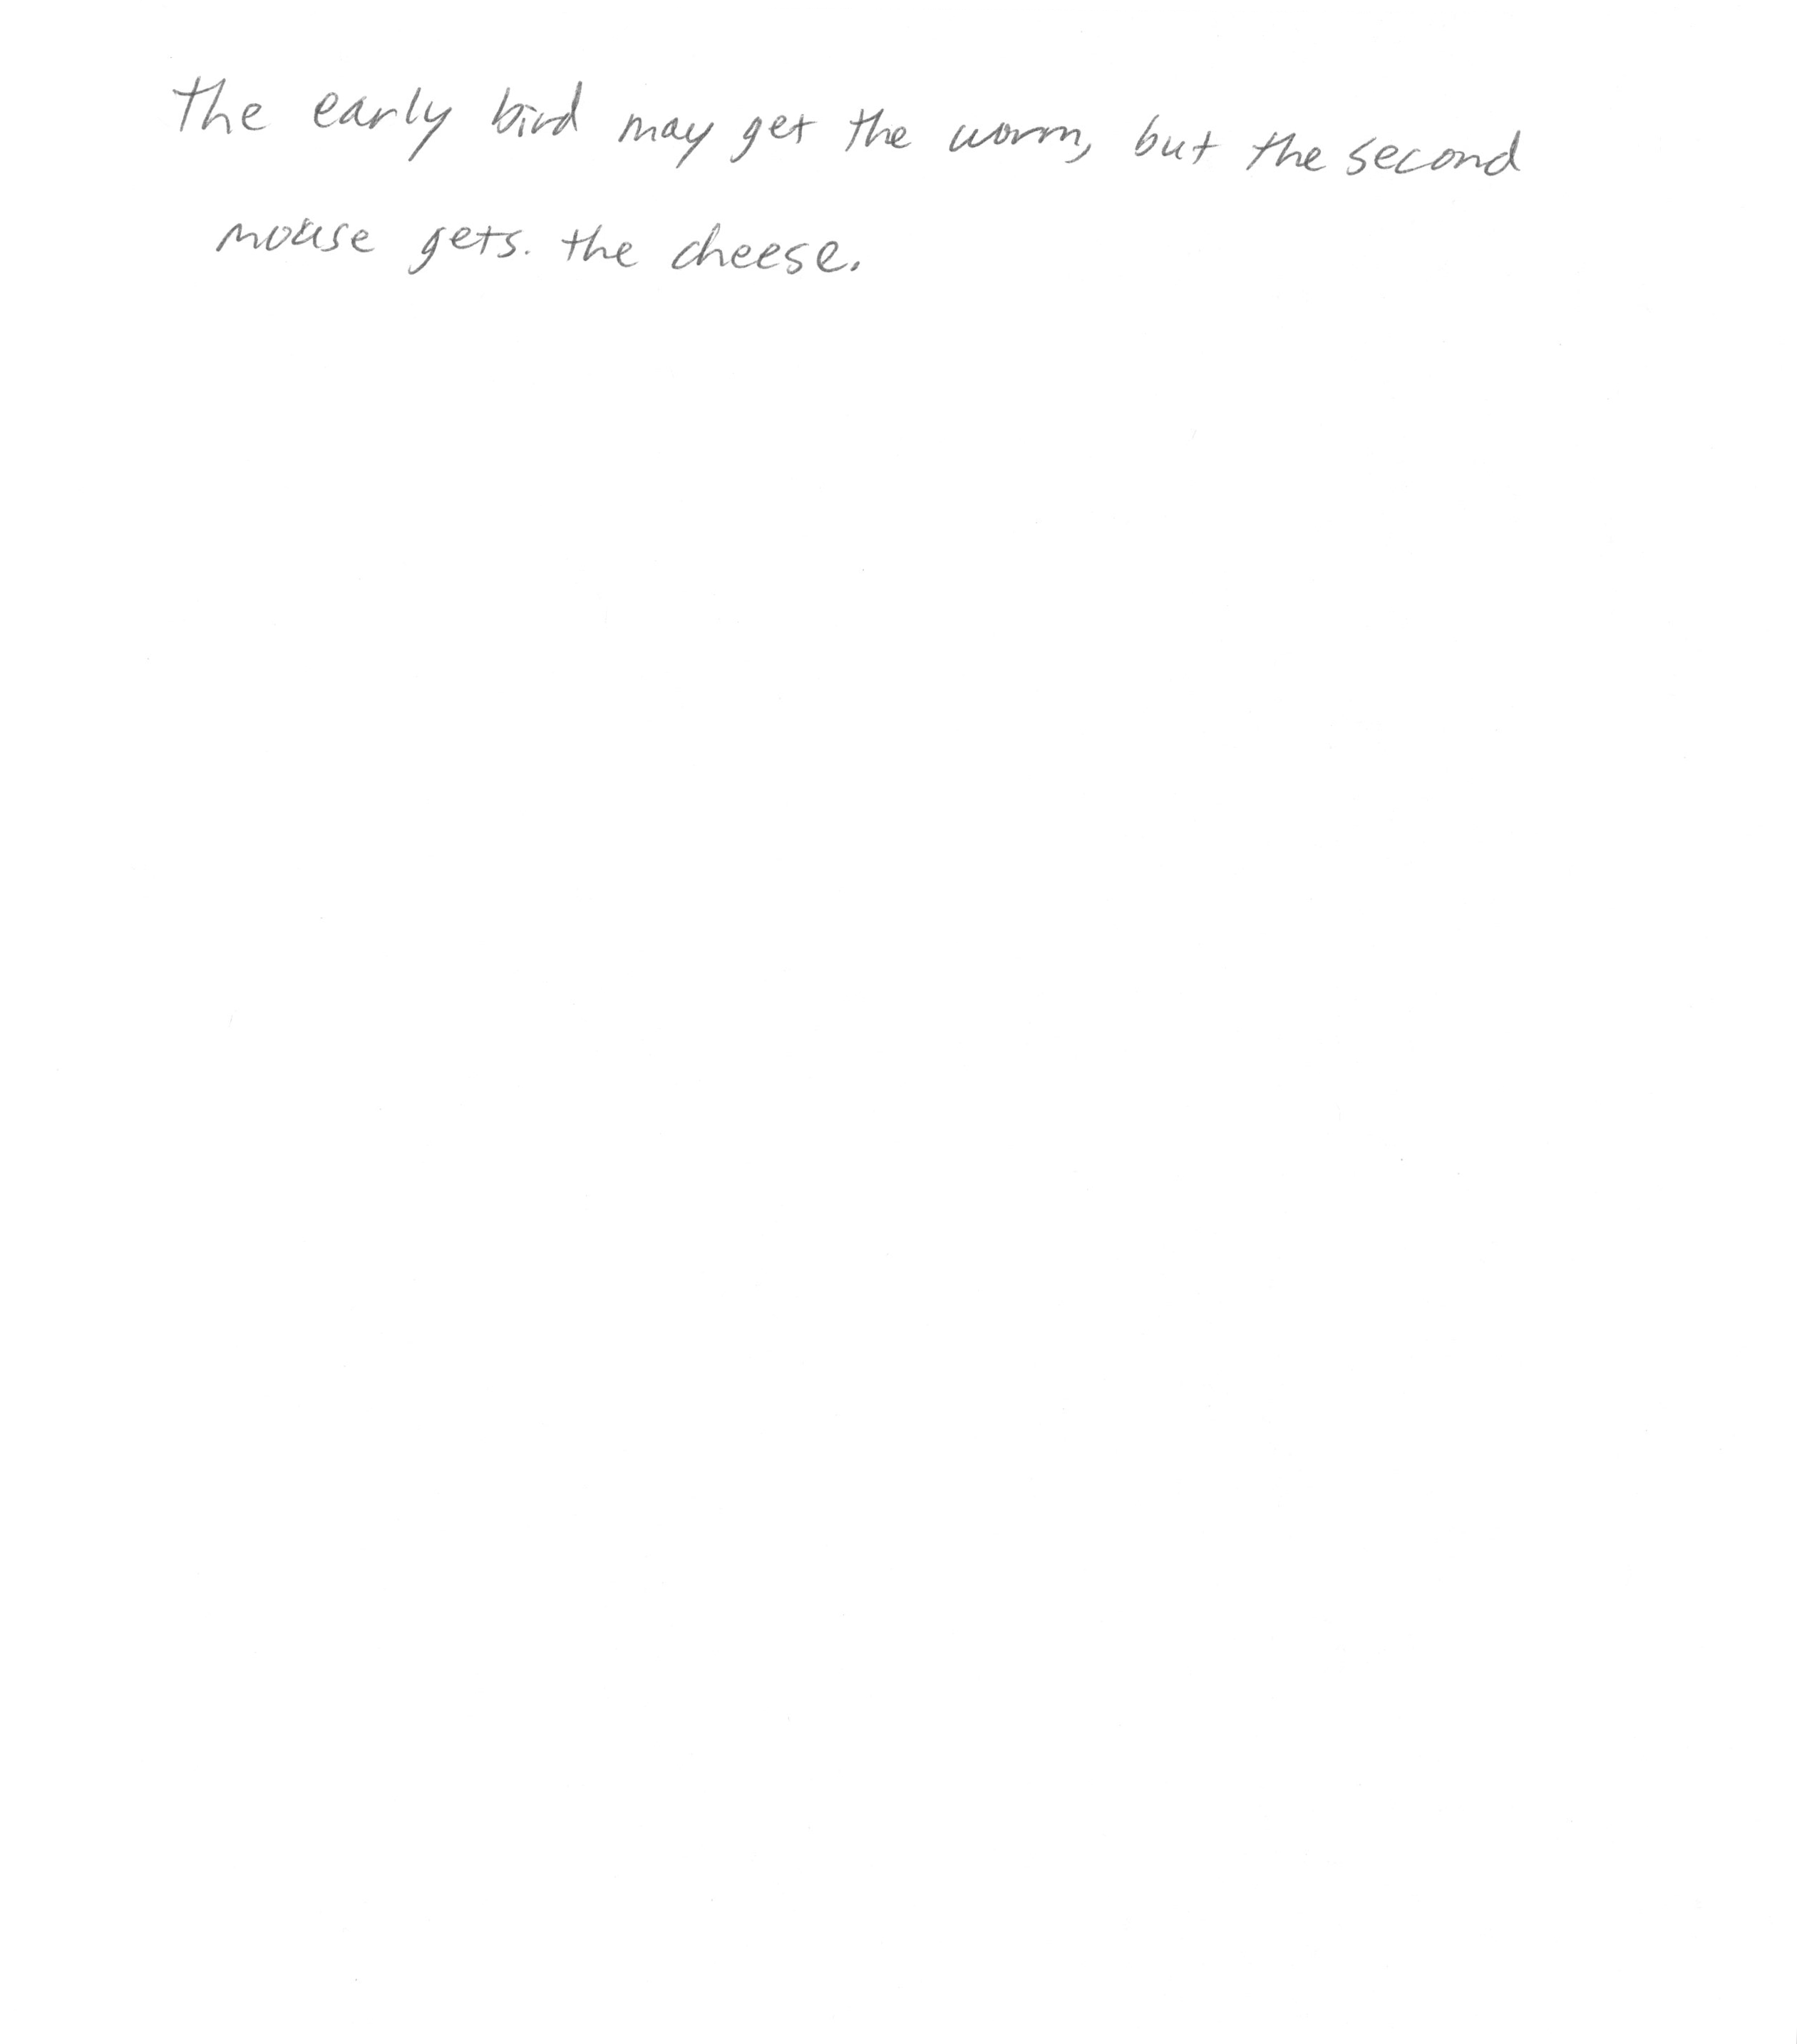 The early bird may get the worm, but the second
mouse gets. the cheese.